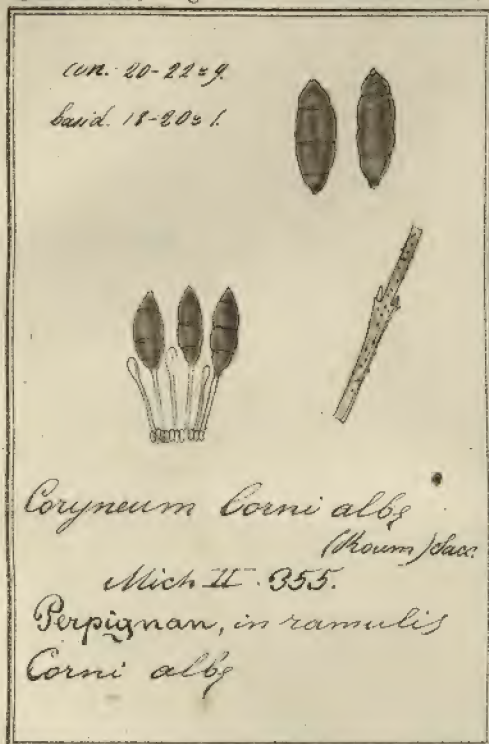 con. 20-22=9.
basid. 18-20=1.
Coryneum Corni albę
(Roum) Sacc.
Mich II. 355.
Perpignan, in ramulis
Corni albę